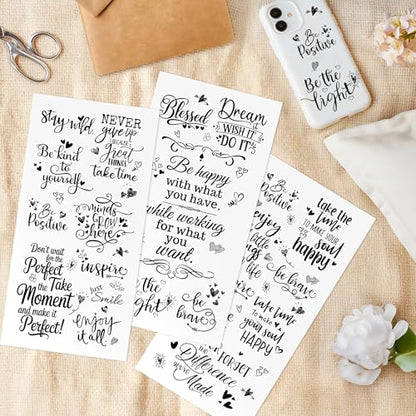 stay wild
NEVER
give up
BECAUSE
GREAT
THINGS
take time
Be kind
to
yourself
Be
Positive
minds
GROW
here
Don't wait
for the
Perfect
Take
the
Moment
and make it
Perfect!
inspire
Just
Smile
enjoy
it all
Blessed
Dream
WISH IT
DO IT
Be happy
with what
you have.
while working
for what
you
want.
Be
the
Light
be
brave
enjoy
the
little
things
life
Take the
time
TO MAKE YOUR
soul
happy
be brave
take time
to make
your soul
HAPPY
FORGET
the
Difference
you've
Made
Be
Positive
Be the
light